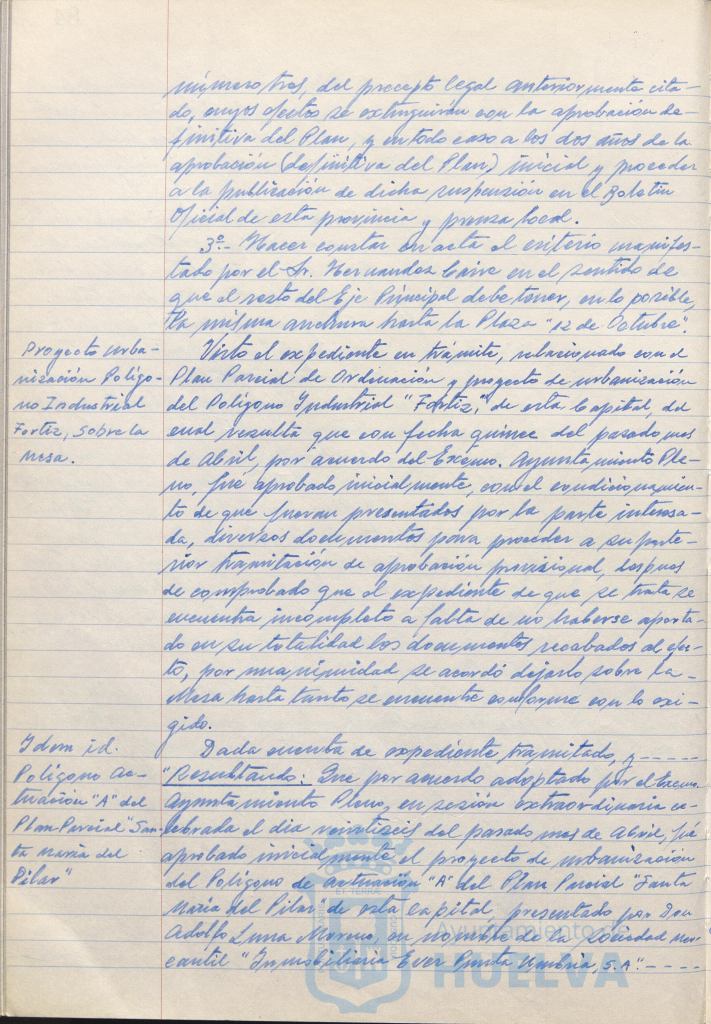 número tres, del precepto legal anteriormente cita-
do, cuyos efectos se extinguirán con la aprobación de-
finitiva del Plan, y en todo caso a los dos años de la
aprobación (definitiva del Plan) inicial y proceder
a la publicación de dicha suspensión en el Boletín
Oficial de esta provincia y prensa local.
3º.- Hacer constar en acta el criterio manifes-
tado por el Sr. Hernandez en el sentido de
que el resto del Eje Principal debe tener, en lo posible,
la misma anchura hasta la Plaza "12 de Octubre"
Proyecto urba-
nización Polígo-
no Industrial
Fortiz, sobre la
mesa.
Visto el expediente en trámite, relacionado con el
Plan Parcial de Ordenación y proyecto de urbanización
del Polígono Industrial "Fortiz," de esta Capital, del
cual resulta que con fecha quince del pasado mes
de Abril, por acuerdo del Excmo. Ayuntamiento Ple-
no, fué aprobado inicialmente, con el condicionamien-
to de que fueran presentados por la parte interesa-
da, diversos documentos para proceder a su poste-
rior tramitación de aprobación provisional, despues
de comprobado que el expediente de que se trata se
encuentra incompleto a falta de no haberse aporta-
do en su totalidad los documentos recabados al efec-
to, por unanimidad se acordó dejarlo sobre la
Mesa hasta tanto se encuentre conforme con lo exi-
gido.
Idem id.
Polígono Ac-
tuación "A" del
Plan Parcial "San-
ta María del
Pilar"
Dada cuenta de expediente tramitado, y-----
"Resultando: Que por acuerdo adoptado por el Excmo.
Ayuntamiento Pleno, en sesión extraordinaria ce-
lebrada el dia veintiseis del pasado mes de Abril, fué
aprobado inicialmente el proyecto de urbanización
del Polígono de actuación "A" del Plan Parcial "Santa
María del Pilar" de esta Capital, presentado por Don
Adolfo Luna Moreno, en nombre de la sociedad mer-
cantil "Inmobiliaria Ever Punta Umbria, S.A".----
Ayuntamiento de
HUELVA